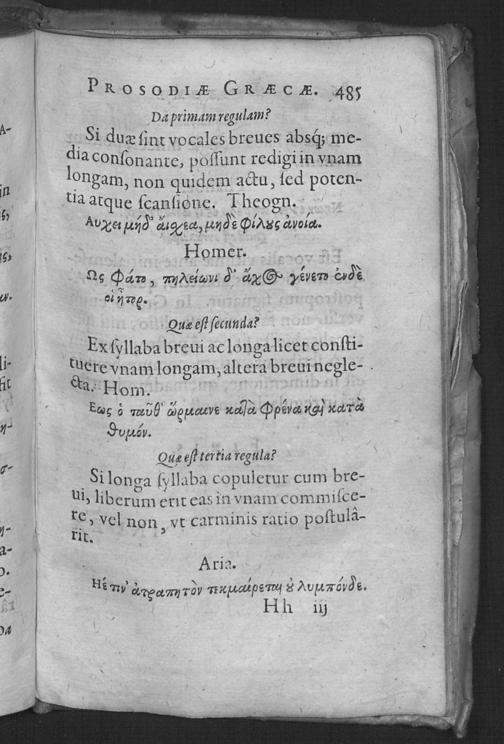 PROSODIÆ GRÆCÆ. 485
Da primam regulam?
Si duæ sint vocales breues absq; me-
dia consonante, possunt redigi in vnam
longam, non quidem actu, sed poten-
tia atque scansione. Theogn.
Αυχει μήδ' αἴσχεα, μηδὲ φίλους ἀνοία.
Homer.
Ως φάτο, πηλείωνι δ' ἄχος γένετο ἐνδὲ
οἱ ἦτορ.
Quæ est secunda?
Ex syllaba breui ac longa licet consti-
tuere vnam longam, altera breui negle-
cta. Hom.
Εως ὁ ταῦθ' ὥρμαινε κατὰ φρένα καὶ κατὰ
θυμόν.
Quæ est tertia regula?
Si longa syllaba copuletur cum bre-
ui, liberum erit eas in vnam commisce-
re, vel non, vt carminis ratio postulâ-
rit.
Aria.
Ηἑ τιν' ἀτραπητὸν τεκμαίρεται οὐλυμπόνδε.
Hh iij